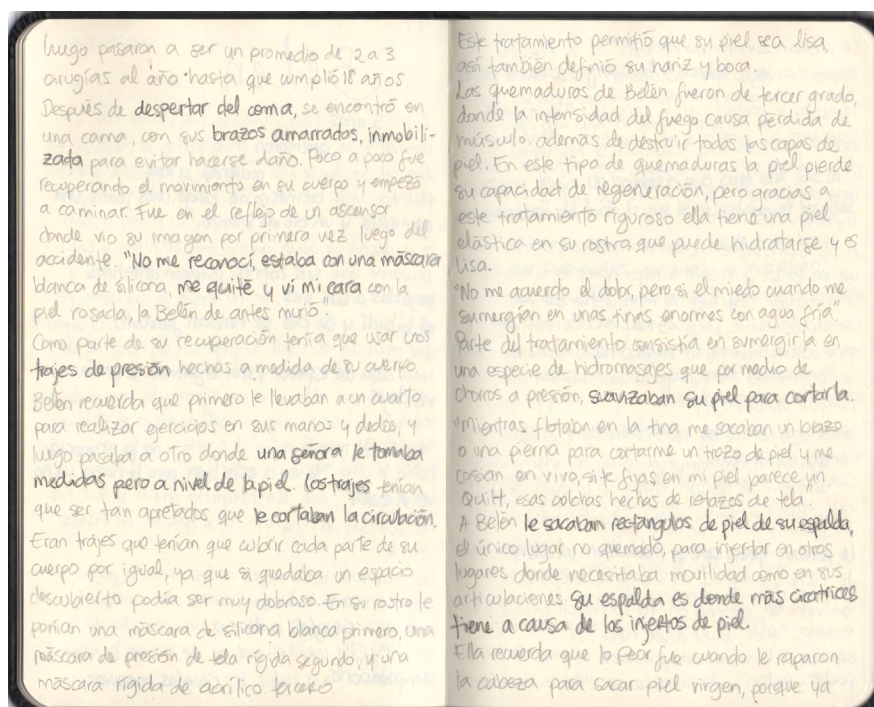 luego pasaron a ser un promedio de 2 a 3
cirugías al año hasta que cumplió 18 años
Después de despertar del coma, se encontró en
una cama, con sus brazos amarrados, inmobili-
zada para evitar hacerse daño. Poco a poco fue
recuperando el movimiento en su cuerpo y empezó
a caminar. Fue en el reflejo de un ascensor
donde vio su imagen por primera vez luego del
accidente. "No me reconocí, estaba con una máscara
blanca de silicona, me quité y vi mi cara con la
piel rosada, la Belén de antes murió.
Como parte de su recuperación tenía que usar unos
trajes de presión hechos a medida de su cuerpo.
Belén recuerda que primero le llevaban a un cuarto
para realizar ejercicios en sus manos y dedos, y
luego pasaba a otro donde una señora le tomaba
medidas pero a nivel de la piel. Los trajes tenían
que ser tan apretados que le cortaban la circulación.
Eran trajes que tenían que cubrir cada parte de su
cuerpo por igual, ya que si quedaba un espacio
descubierto podía ser muy doloroso. En su rostro le
ponían una máscara de silicona blanca primero, una
máscara de presión de tela rígida segundo, y una
máscara rígida de acrílico tercero
Este tratamiento permitió que su piel sea lisa,
así también definió su nariz y boca.
Las quemaduras de Belén fueron de tercer grado,
donde la intensidad del fuego causa pérdida de
músculo. además de destruir todas las capas de
piel. En este tipo de quemaduras la piel pierde
su capacidad de regeneración, pero gracias a
este tratamiento riguroso ella tiene una piel
elástica en su rostro, que puede hidratarse y es
lisa.
"No me acuerdo el dolor, pero si el miedo cuando me
sumergían en unas tinas enormes con agua fría."
Parte del tratamiento consistía en sumergirla en
una especie de hidromasajes que por medio de
chorros a presión, suavizaban su piel para cortarla.
"Mientras flotaba en la tina me sacaban un brazo
o una pierna para cortarme un trozo de piel y me
cosían en vivo, si te fijas en mi piel parece un
Quilt, esas colchas hechas de retazos de tela.
A Belén le sacaban rectángulos de piel de su espalda,
el único lugar no quemado, para injertar en otros
lugares donde necesitaba movilidad como en sus
articulaciones. Su espalda es donde más cicatrices
tiene a causa de los injertos de piel.
Ella recuerda que lo peor fue cuando le raparon
la cabeza para sacar piel virgen, porque ya